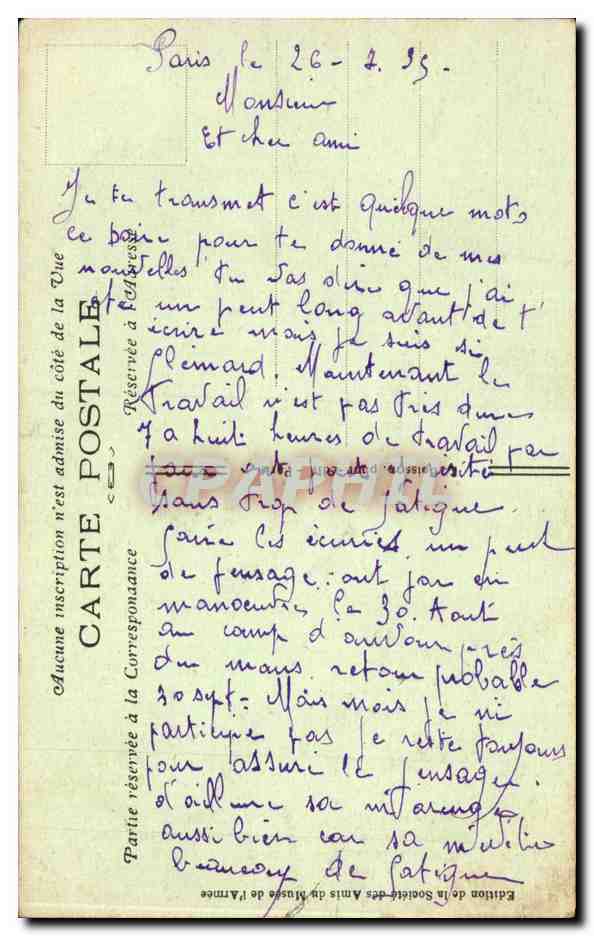 Paris le 26-7.35.
Monsieur
Et cher ami
Je te transmet c'est quelque mots
ce soir pour te donné de mes
nouvelles Tu vas dire que j'ai
eté un peut long avant de t'
écrire mais je suis si
flémard. Maintenant le
travail n'est pas très dure
7 a huit heures de travail par
jour et
sans trop de fatigue
faire les écuries un peut
de pensage
manoeuvres le 30. Aout
au camp d'auvour près
du mans retour probable
30 sept. Mais mois je ni
participe pas je reste toujours
pour assuré le pensage.
d'ailleure sa m'arrange
aussi bien car sa m'évite
beaucoup de fatigue
Aucune inscription n'est admise du côté de la Vue
CARTE POSTALE
Réservée à l'Adresse
Partie réservée à la Correspondance
Edition de la Société des Amis du Musée de l'Armée
CPAPHIL